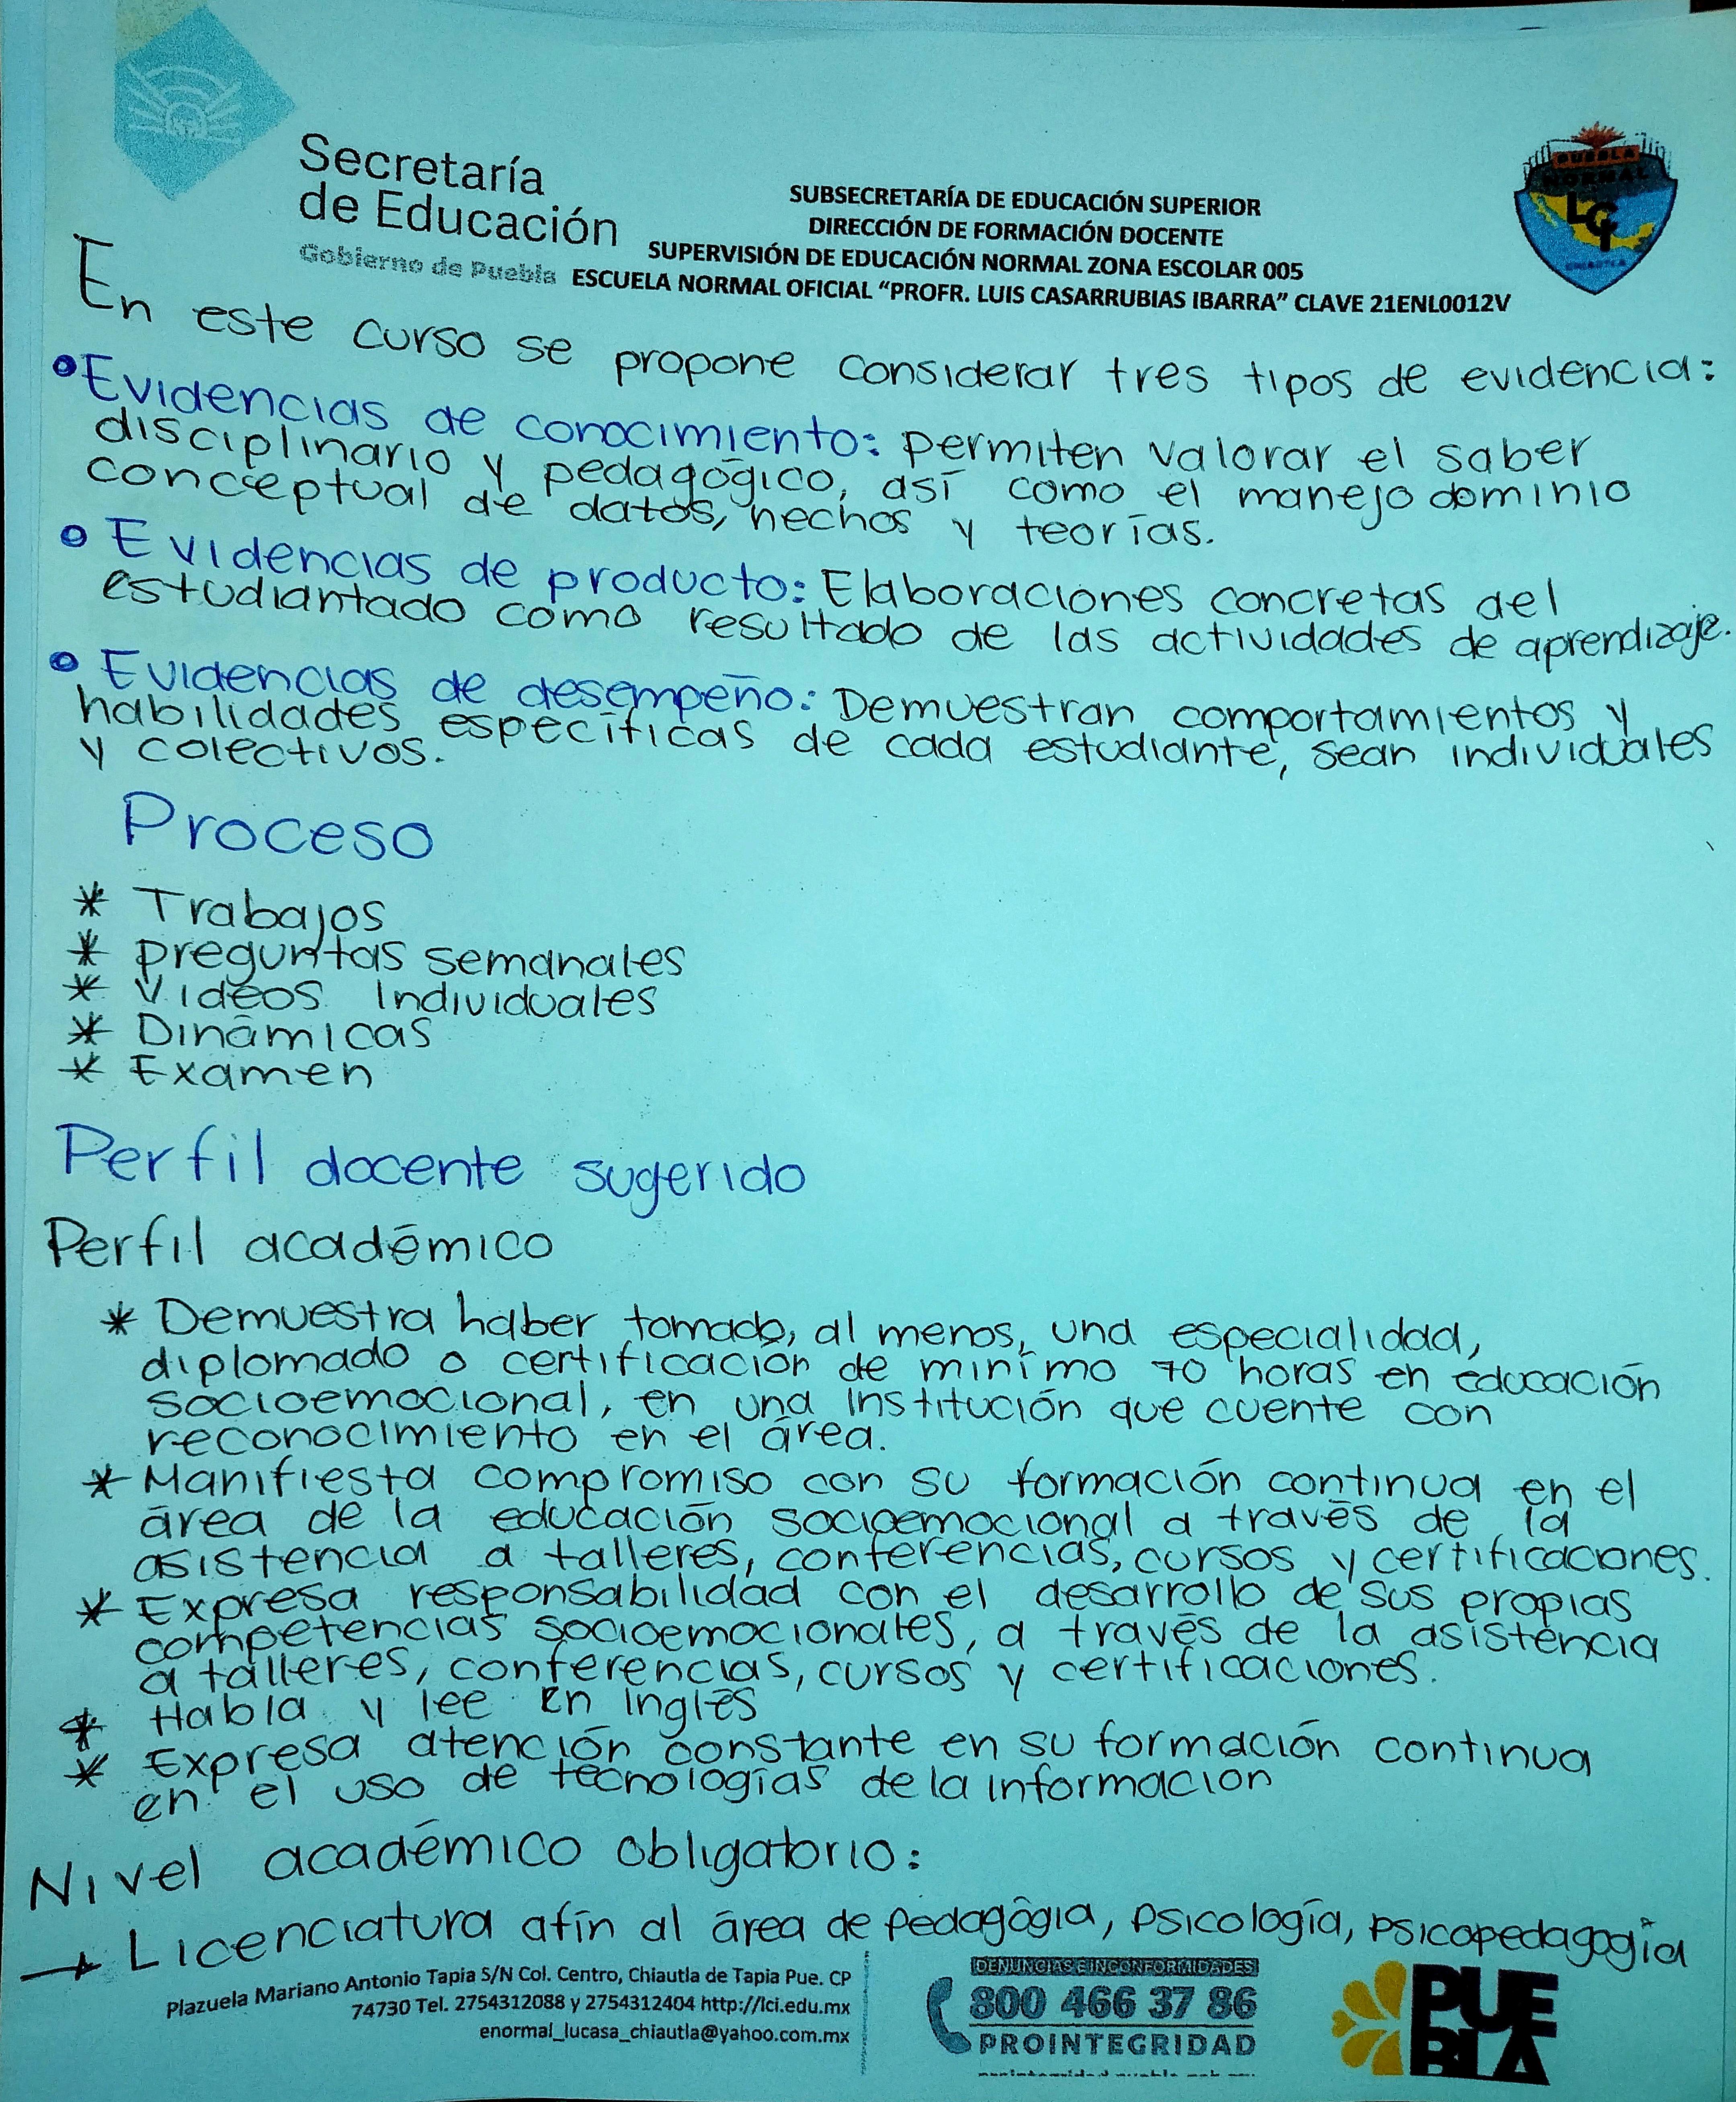 Secretaría
de Educación
Gobierno de Puebla
SUBSECRETARÍA DE EDUCACIÓN SUPERIOR
DIRECCIÓN DE FORMACIÓN DOCENTE
SUPERVISIÓN DE EDUCACIÓN NORMAL ZONA ESCOLAR 005
ESCUELA NORMAL OFICIAL “PROFR. LUIS CASARRUBIAS IBARRA” CLAVE 21ENL0012V
PUEBLA
NORMAL
LCI
CHIAUTLA
En este curso se propone considerar tres tipos de evidencia:
• Evidencias de conocimiento: permiten valorar el saber
disciplinario y pedagógico, así como el manejo dominio
conceptual de datos, hechos y teorías.
• Evidencias de producto: Elaboraciones concretas del
estudiantado como resultado de las actividades de aprendizaje.
• Evidencias de desempeño: Demuestran comportamientos y
habilidades específicas de cada estudiante, sean individuales
y colectivos.
Proceso
* Trabajos
* preguntas semanales
* Videos Individuales
* Dinámicas
* Examen
Perfil docente sugerido
Perfil académico
* Demuestra haber tomado, al menos, una especialidad,
diplomado o certificación de minímo 70 horas en educación
socioemocional, en una institución que cuente con
reconocimiento en el área.
* Manifiesta compromiso con su formación continua en el
área de la educación socioemocional a través de la
asistencia a talleres, conferencias, cursos y certificaciones.
* Expresa responsabilidad con el desarrollo de sus propias
competencias socioemocionales, a través de la asistencia
a talleres, conferencias, cursos y certificaciones.
* Habla y lee en inglés
* Expresa atención constante en su formación continua
en el uso de tecnologías de la información
Nivel académico obligatorio:
→ Licenciatura afín al área de Pedagógia, psicología, psicopedagogía
Plazuela Mariano Antonio Tapia S/N Col. Centro, Chiautla de Tapia Pue. CP
74730 Tel. 2754312088 y 2754312404 http://lci.edu.mx
enormal_lucasa_chiautla@yahoo.com.mx
DENUNCIAS E INCONFORMIDADES
800 466 37 86
PROINTEGRIDAD
PUE
BLA